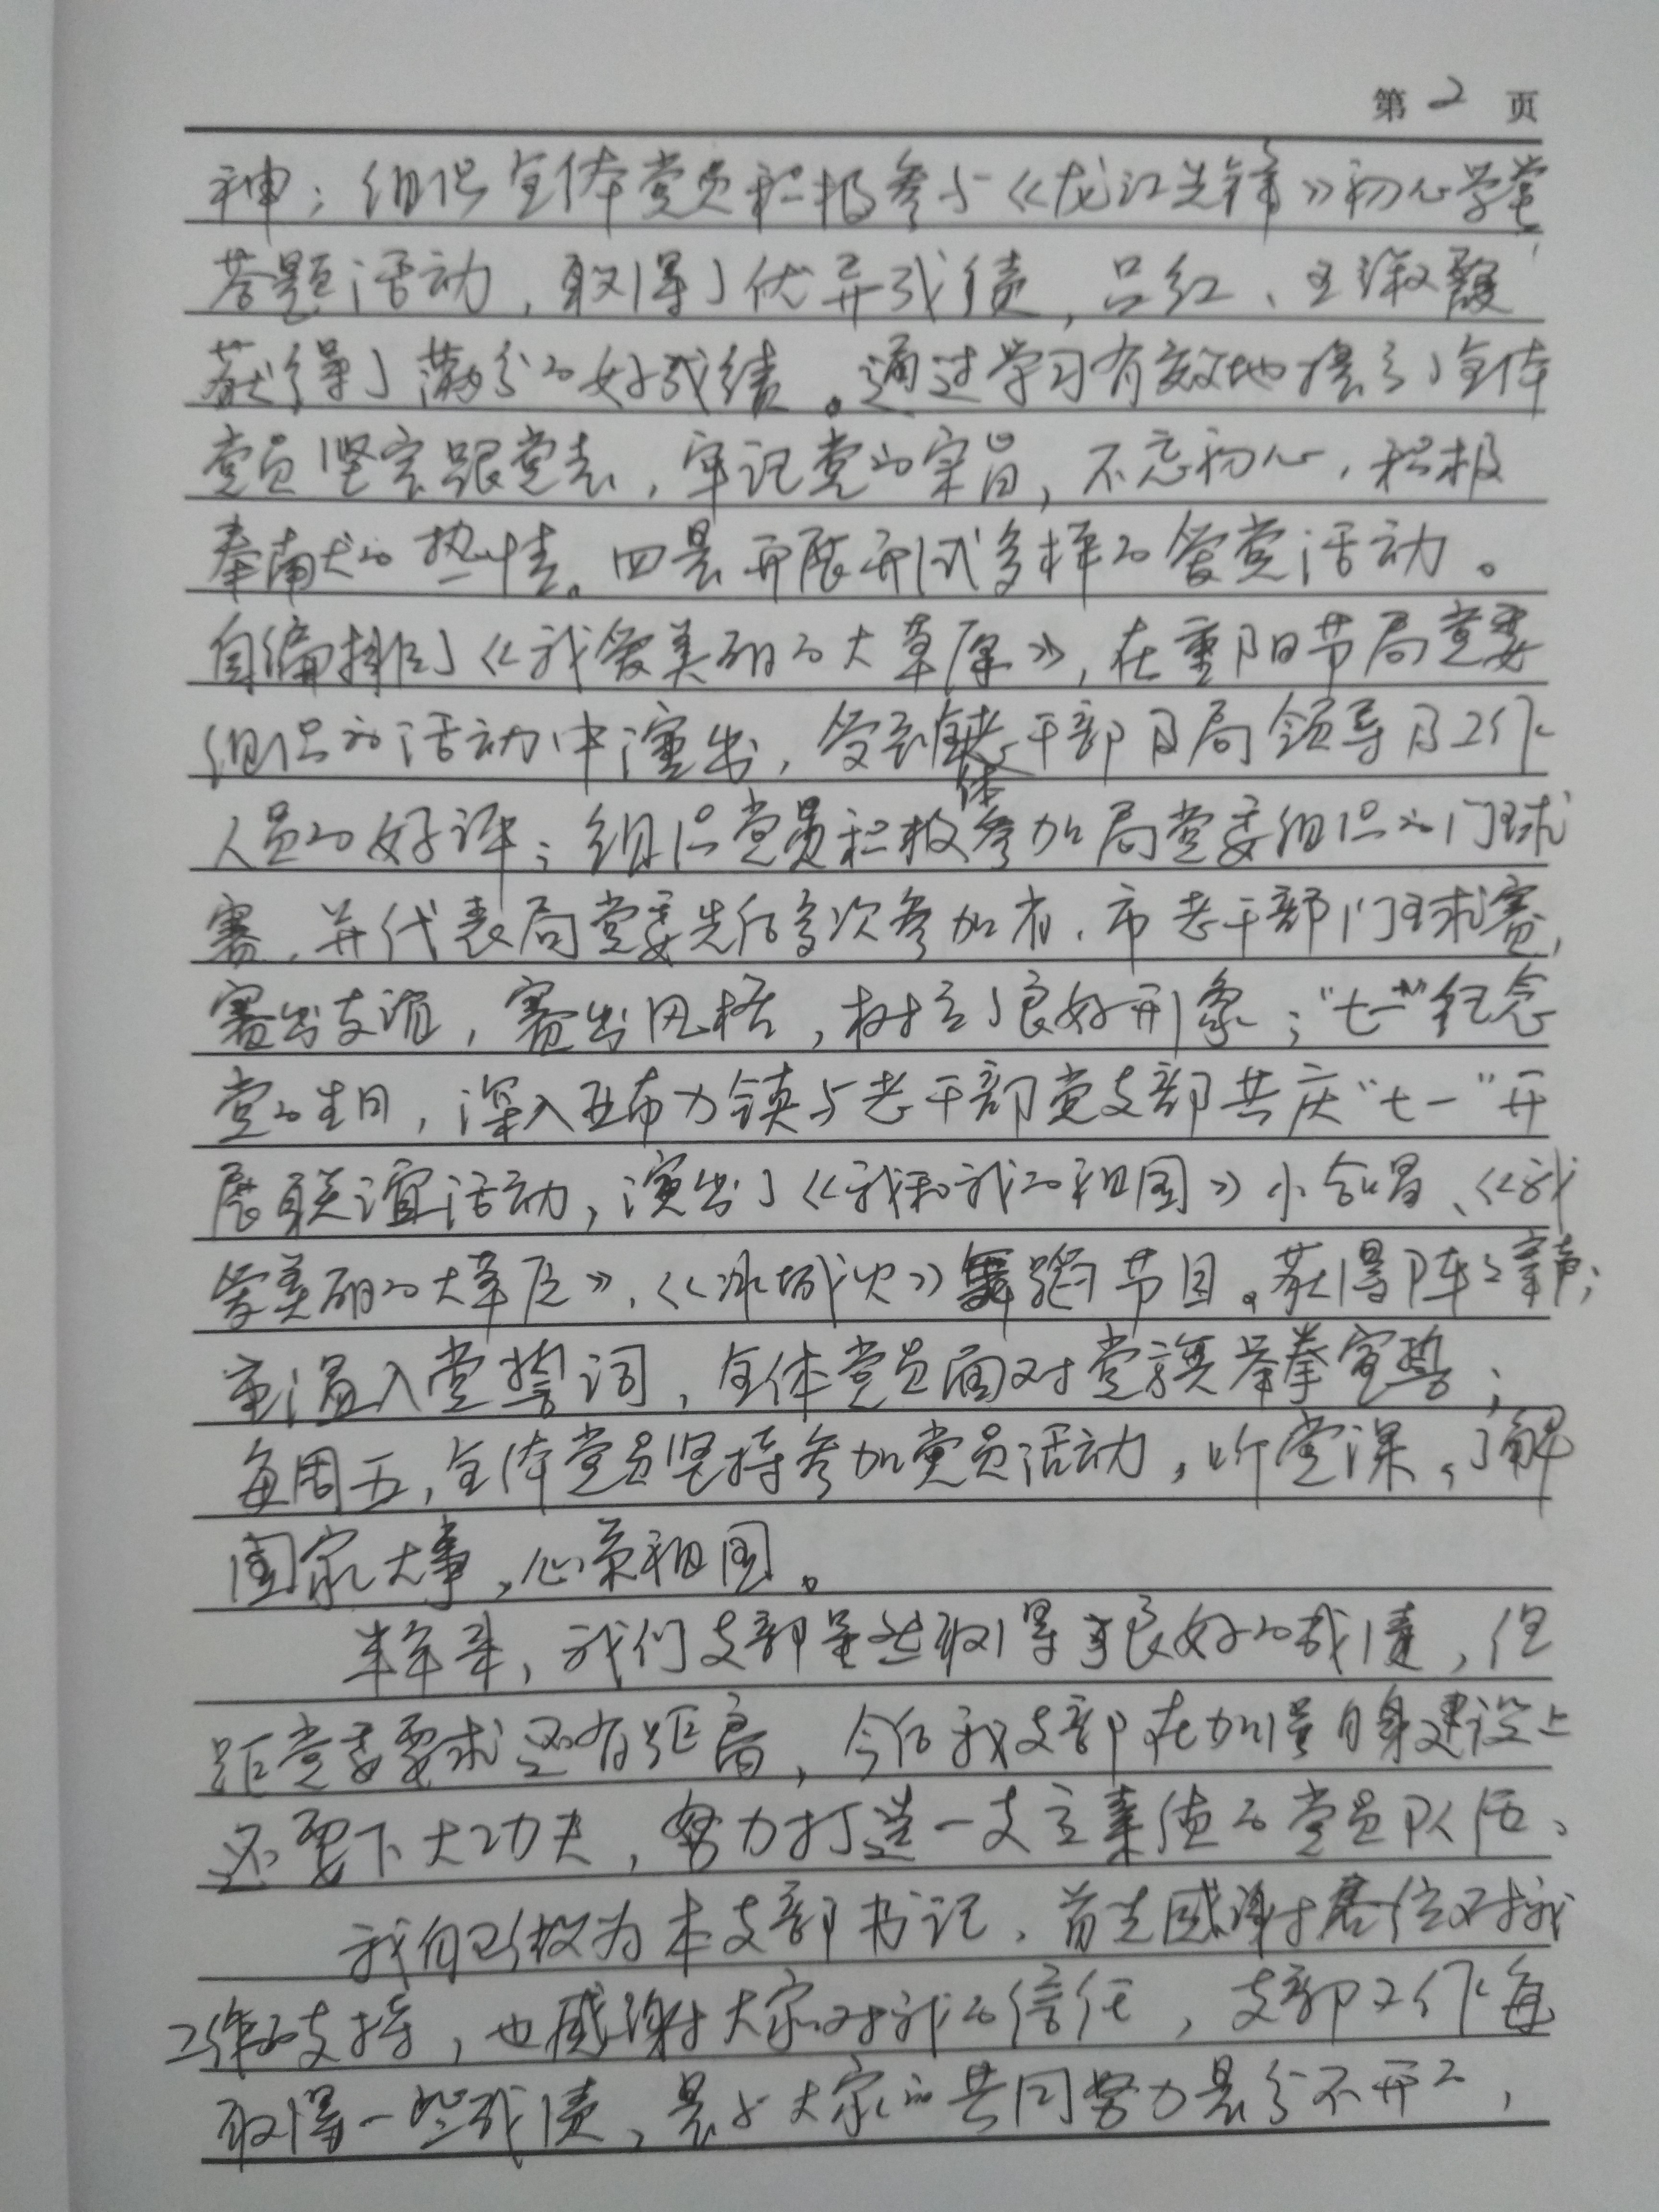 第2页
神；组织全体党员积极参与《龙江先锋》初心学堂
答题活动，取得了优异成绩，吕红、王淑馥
获得了满分的好成绩。通过学习有效地提高了全体
党员坚定跟党走，牢记党的宗旨，不忘初心，积极
奉献的热情。四是开展形式多样的爱党活动。
自编排了《我爱美丽的大草原》，在重阳节局党委
组织的活动中演出，受到全体老干部及局领导及工作
人员的好评；组织党员积极参加局党委组织的门球
赛，并代表局党委先后多次参加省、市老干部门球赛，
赛出友谊，赛出风格，树立了良好形象；“七一”纪念
党的生日，深入亚布力镇与老干部党支部共庆“七一”开
展联谊活动，演出了《我和我的祖国》小合唱、《我
爱美丽的大草原》、《冰城火》舞蹈节目。获得阵阵掌声；
重温入党誓词，全体党员面对党旗举拳宣誓；
每周五，全体党员坚持参加党员活动，听党课，了解
国家大事，心系祖国。
半年来，我们支部虽然取得了良好的成绩，但
距党委要求还有距离，今后我支部在加强自身建设上
还要下大功夫，努力打造一支高素质的党员队伍。
我自己做为本支部书记，首先感谢各位对我
工作的支持，也感谢大家对我的信任，支部工作每
取得一些成绩，是与大家的共同努力是分不开的，